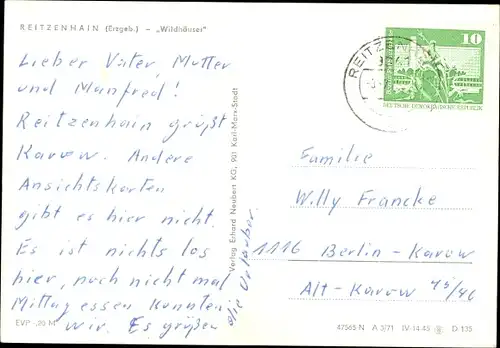 REITZENHAIN (Erzgeb.) – „Wildhäuser"
Lieber Vater, Mutter
und Manfred!
Reitzenhain grüßt
Karow. Andere
Ansichtskarten
gibt es hier nicht.
Es ist nichts los
hier, noch nicht mal
Mittag essen konnten
wir. Es grüßen
die Urlauber.
EVP -,20 M
Verlag Erhard Neubert KG, 901 Karl-Marx-Stadt
REITZEN
10
DEUTSCHE DEMOKRATISCHE REPUBLIK
Familie
Willy Francke
1116 Berlin-Karow
Alt-Karow 45/46
47565 N A 3/71 IV-14-45 D 135